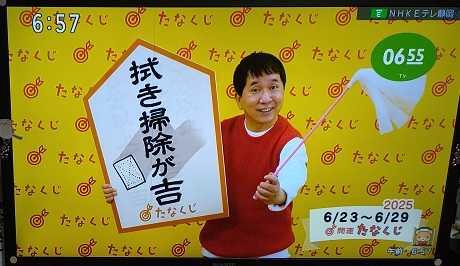 6:57
NHKEテレ静岡
0655
TV
たなくじ
たなくじ
たなくじ
たなくじ
拭き掃除が吉
たなくじ
たなくじ
たなくじ
たなくじ
2025
6/23〜6/29
開運 たなくじ
午前 6:57